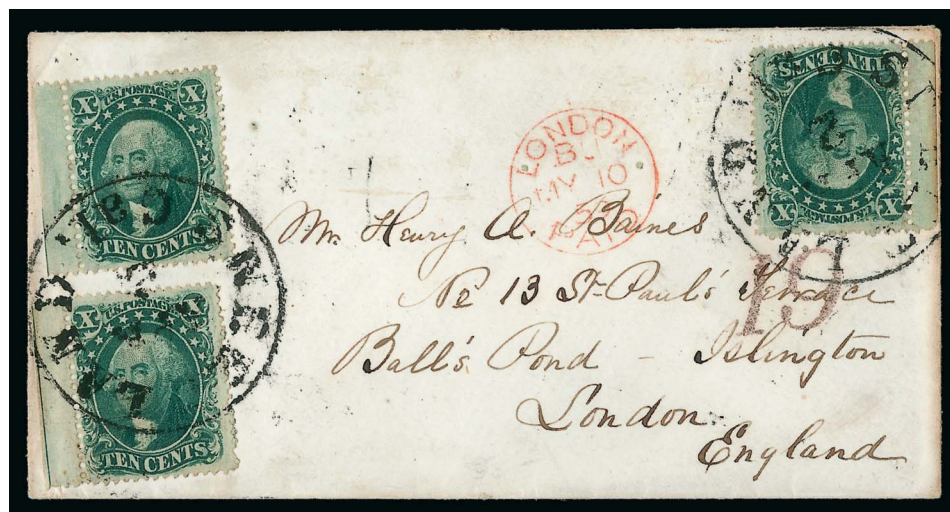 U.S. POSTAGE
X X
TEN CENTS
U.S. POSTAGE
X X
TEN CENTS
Cal.
U.S. POSTAGE
X X
TEN CENTS
LONDON
MY 10
PAID
19
Mr. Henry A. Baines
No 13 St. Paul's Terrace
Ball's Pond – Islington
London
England